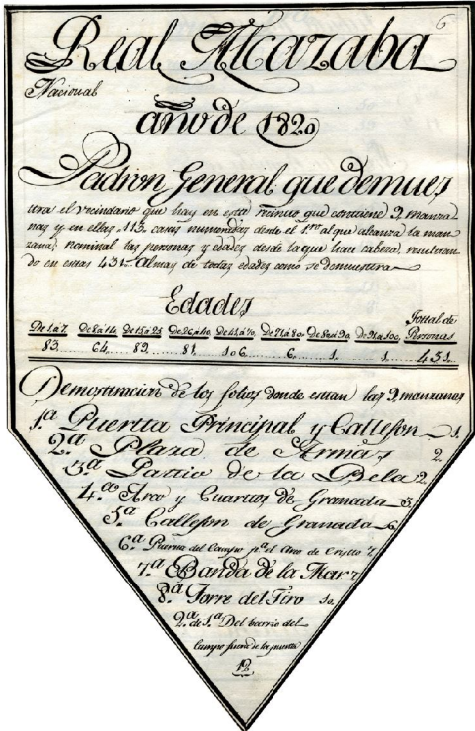 6
Real Alcazaba
Nacional
año de 1820
Padron General que demues
tra el vecindario que hay en este recinto que contiene 9 manza
nas y en ellas 113 casas numeradas desde el 1º al que alcanza la man
zana, nominal las personas y edades desde la que han cabeza, resultan
do en estas 431 Almas de todas edades como se demuestra
Edades
De 1 a 7 De 8 a 14 De 15 a 25 De 26 a 40 De 41 a 70 De 71 a 80 De 80 a 90 De 91 a 100 Total de Personas
83 64 89 81 106 6 1 1 431
Demostracion de los folios donde estan las 9 manzanas
1.ª Puerta Principal y Callejon 1.
2.ª Plaza de Armas 2.
3.ª Pattio de la Bela 2
4.ª Arco y Cuartos de Granada 3
5.ª Callejon de Granada 6
6.ª Puerta del Campo pª el Arco de Cristo 7
7.ª Banda de la Mar 7
8.ª Torre del Tiro 10
9.ª de 1.ª Del barrio del
Campo fuera de la puerta
12